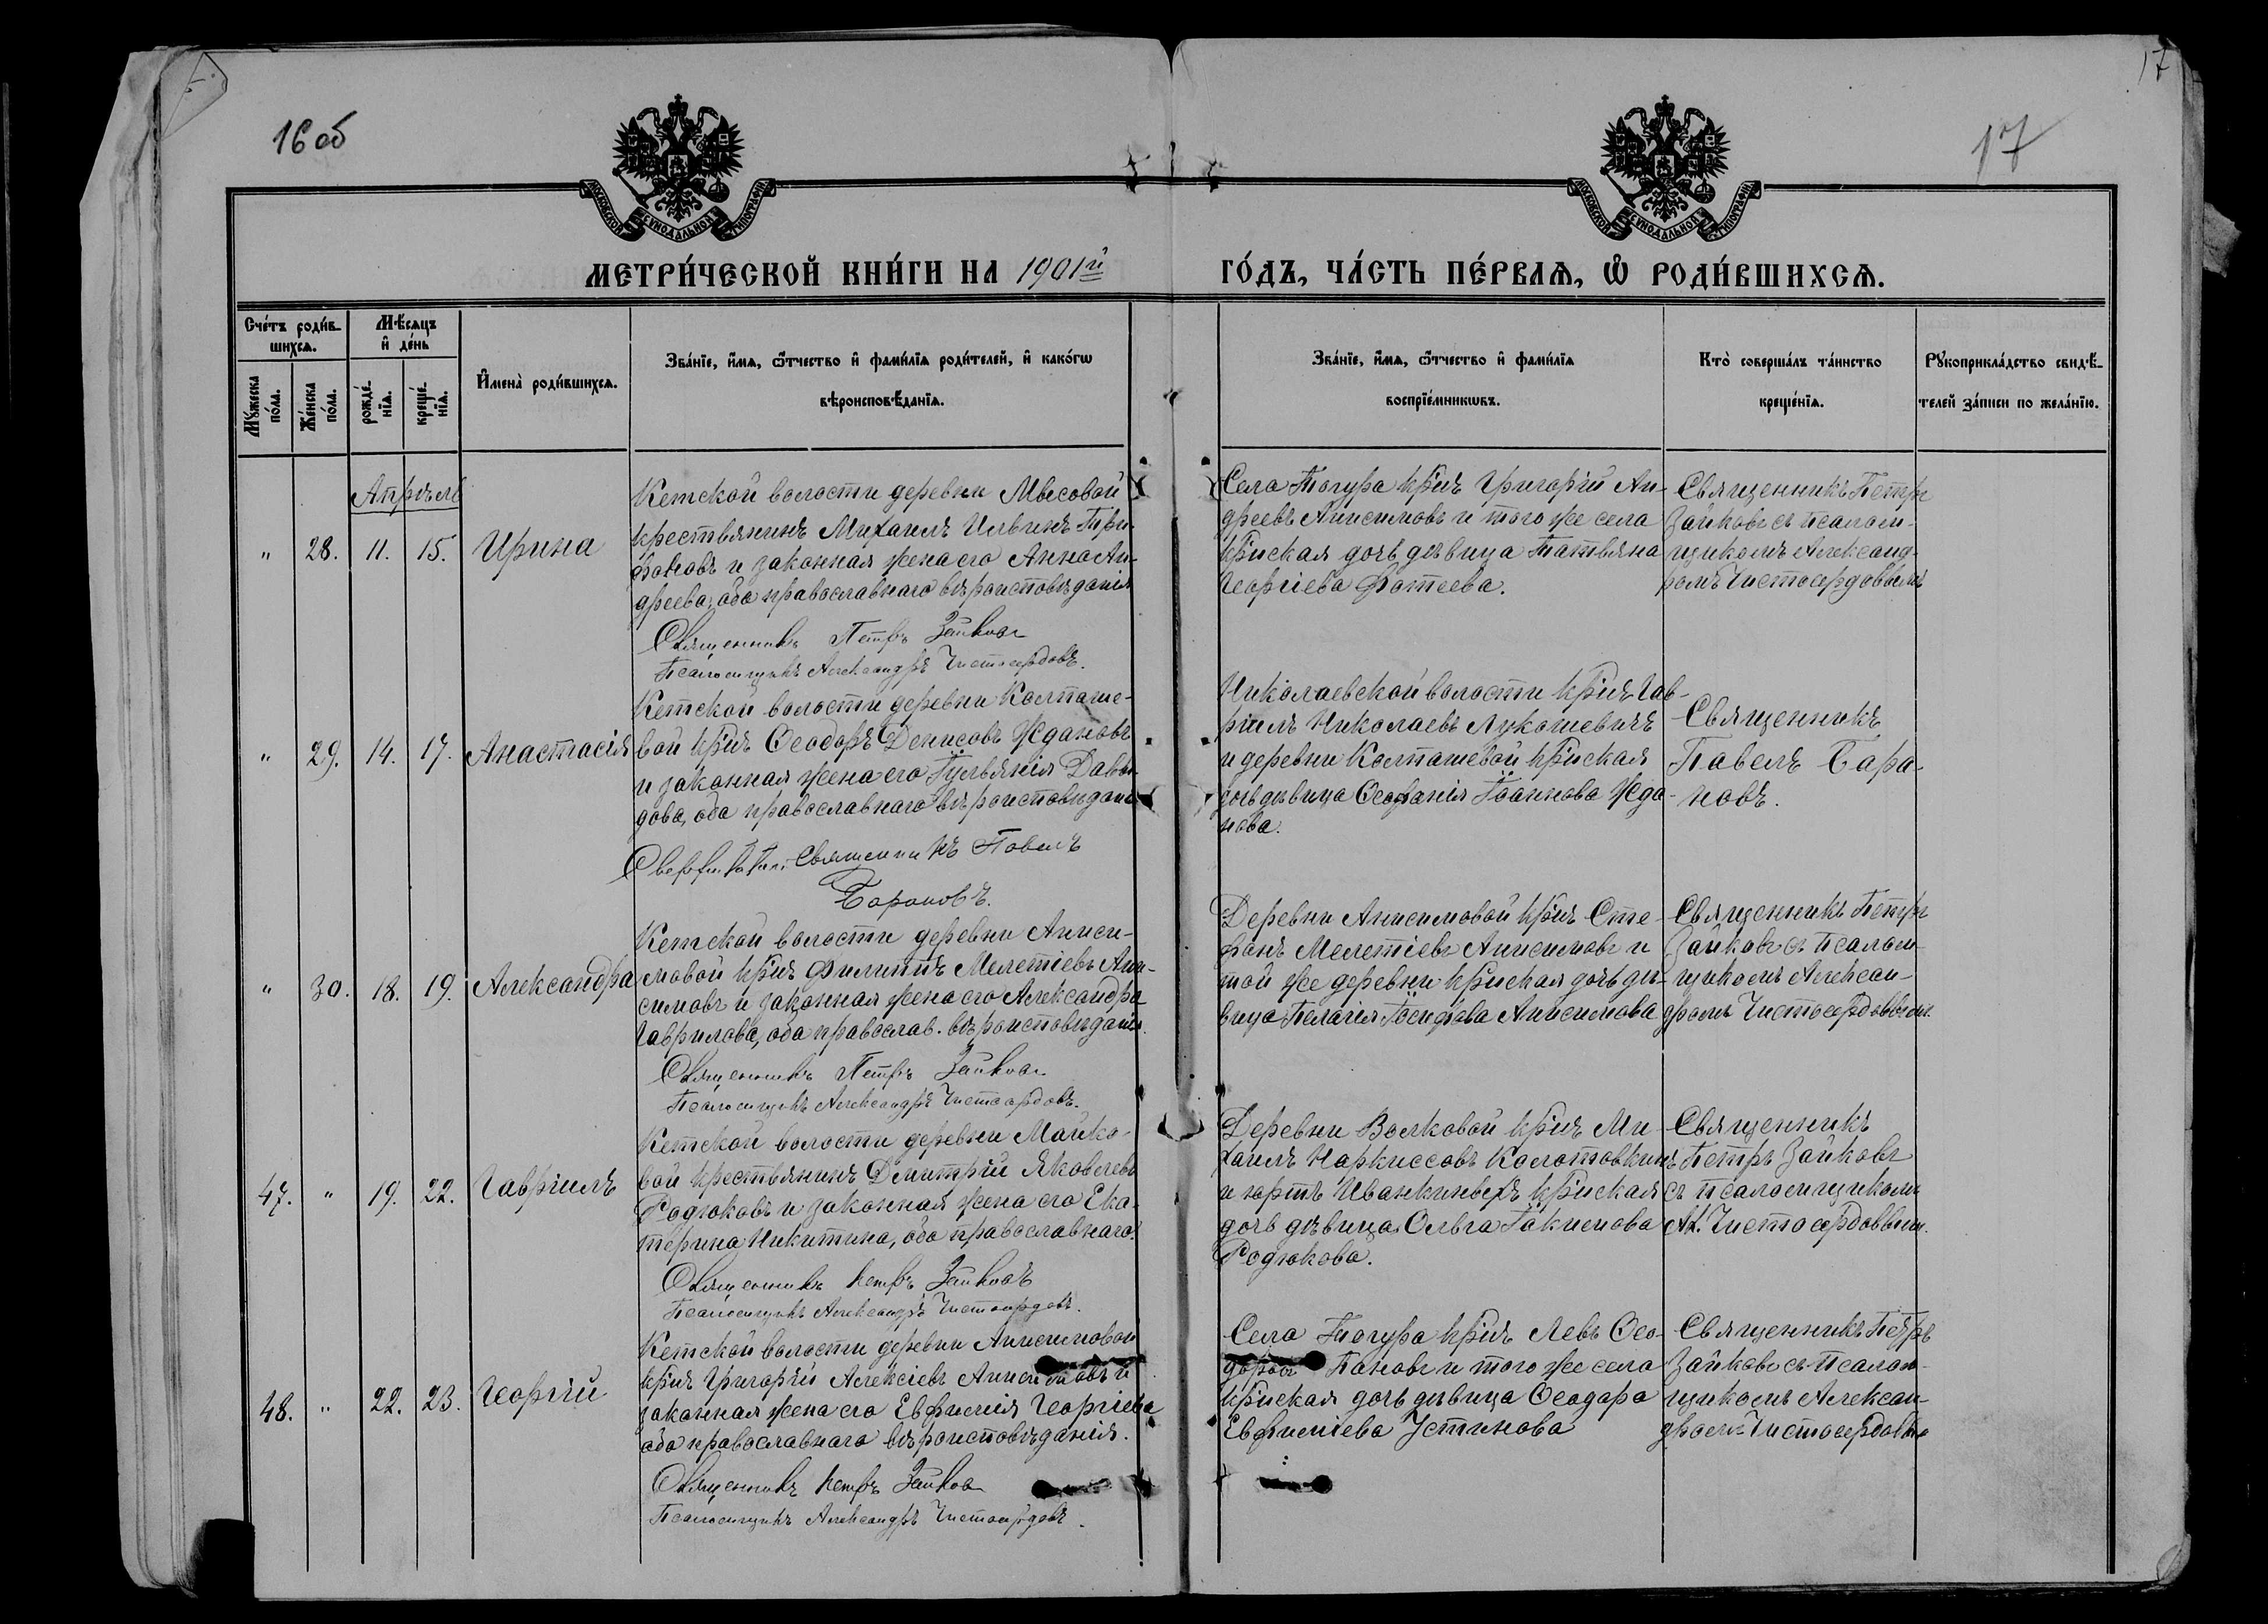 16 об
17
17
МОСКОВСКОЙ СѴНОДАЛЬНОЙ ТИПОГРАФІИ
МОСКОВСКОЙ СѴНОДАЛЬНОЙ ТИПОГРАФІИ
МЕТРИ́ЧЕСКОЙ КНИ́ГИ НА 1901й
ГО́ДЪ, ЧА́СТЬ ПЕ́РВАѦ, Ѡ҆ РОДИ́ВШИХСѦ.
Сче́тъ роди́в-
шихсѧ.
Мꙋ́жеска
по́ла.
Же́нска
по́ла.
Мѣ́сѧцъ
и҆ де́нь
рожде́-
нїѧ.
креще́-
нїѧ.
И҆мена̀ роди́вшихсѧ.
Зва́нїе, и҆́мѧ, ѻ҆́тчество и҆ фами́лїѧ роди́телей, и҆ како́гѡ
вѣроисповѣ́данїѧ.
Зва́нїе, и҆́мѧ, ѻ҆́тчество и҆ фами́лїѧ
воспрїе́мникѡвъ.
Кто̀ соверша́лъ та́инство
креще́нїѧ.
Рꙋкоприкла́дство свидѣ́-
телей за́писи по жела́нїю.
Апрѣль
" 28. 11. 15. Ирина
Кетской волости деревни Мысовой
крестьянинъ Михаилъ Ильинъ Три-
фоновъ и законная жена его Анна Ан-
дреева, оба православнаго вѣроисповѣданія
Священникъ Петръ Зайковъ
Псаломщикъ Александръ Чистосердовъ.
Села Тогура крнъ Григорій Ан-
дреевъ Анисимовъ и того же села
крнская дочь дѣвица Татьяна
Георгіева Фатеева.
Священникъ Петръ
Зайковъ съ псалом-
щикомъ Александ-
ромъ Чистосердовымъ
" 29. 14. 17. Анастасія
Кетской волости деревни Колпаше-
вой крнъ Ѳеодоръ Денисовъ Ждановъ
и законная жена его Гульянія Давы-
дова, оба православнаго вѣроисповѣданія
Священникъ Павелъ
Барановъ.
Николаевской волости крнъ Гав-
ріилъ Николаевъ Лукошевичъ
и деревни Колпашевой крнская
дочь дѣвица Ѳеофанія Іоаннова Жда-
нова.
Священникъ
Павелъ Бара-
новъ.
" 30. 18. 19. Александра
Кетской волости деревни Аниси-
мовой крнъ Филиппъ Мелетіевъ Ани-
симовъ и законная жена его Александра
Гаврилова, оба православ. вѣроисповѣданія.
Священникъ Петръ Зайковъ
Псаломщикъ Александръ Чистосердовъ.
Деревни Анисимовой крнъ Сте-
фанъ Мелетіевъ Анисимовъ и
той же деревни крнская дочь дѣ-
вица Пелагія Іосифова Анисимова
Священникъ Петръ
Зайковъ съ псалом-
щикомъ Алексан-
дромъ Чистосердовымъ.
47. " 19. 22. Гавріилъ
Кетской волости деревни Майко-
вой крестьянинъ Димитрій Яковлевъ
Родюковъ и законная жена его Ека-
терина Никитина, оба православнаго.
Священникъ Петръ Зайковъ
Псаломщикъ Александръ Чистосердовъ.
Деревни Волковой крнъ Ми-
хаилъ Наркиссовъ Колотовкинъ
и юртъ Иванкиныхъ крнская
дочь дѣвица Ольга Іакимова
Родюкова.
Священникъ
Петръ Зайковъ
съ псаломщикомъ
Ал. Чистосердовым.
48. " 22. 23. Георгій
Кетской волости деревни Анисимовой
крнъ Григорій Алексіевъ Анисимовъ и
законная жена его Евфимія Георгіева
оба православнаго вѣроисповѣданія.
Священникъ Петръ Зайковъ
Псаломщикъ Александръ Чистосердовъ.
Села Тогура крнъ Левъ Ѳео-
доровъ Пановъ и того же села
крнская дочь дѣвица Ѳеодора
Евфиміева Устинова
Священникъ Петръ
Зайковъ съ псалом-
щикомъ Алексан-
дромъ Чистосердовым